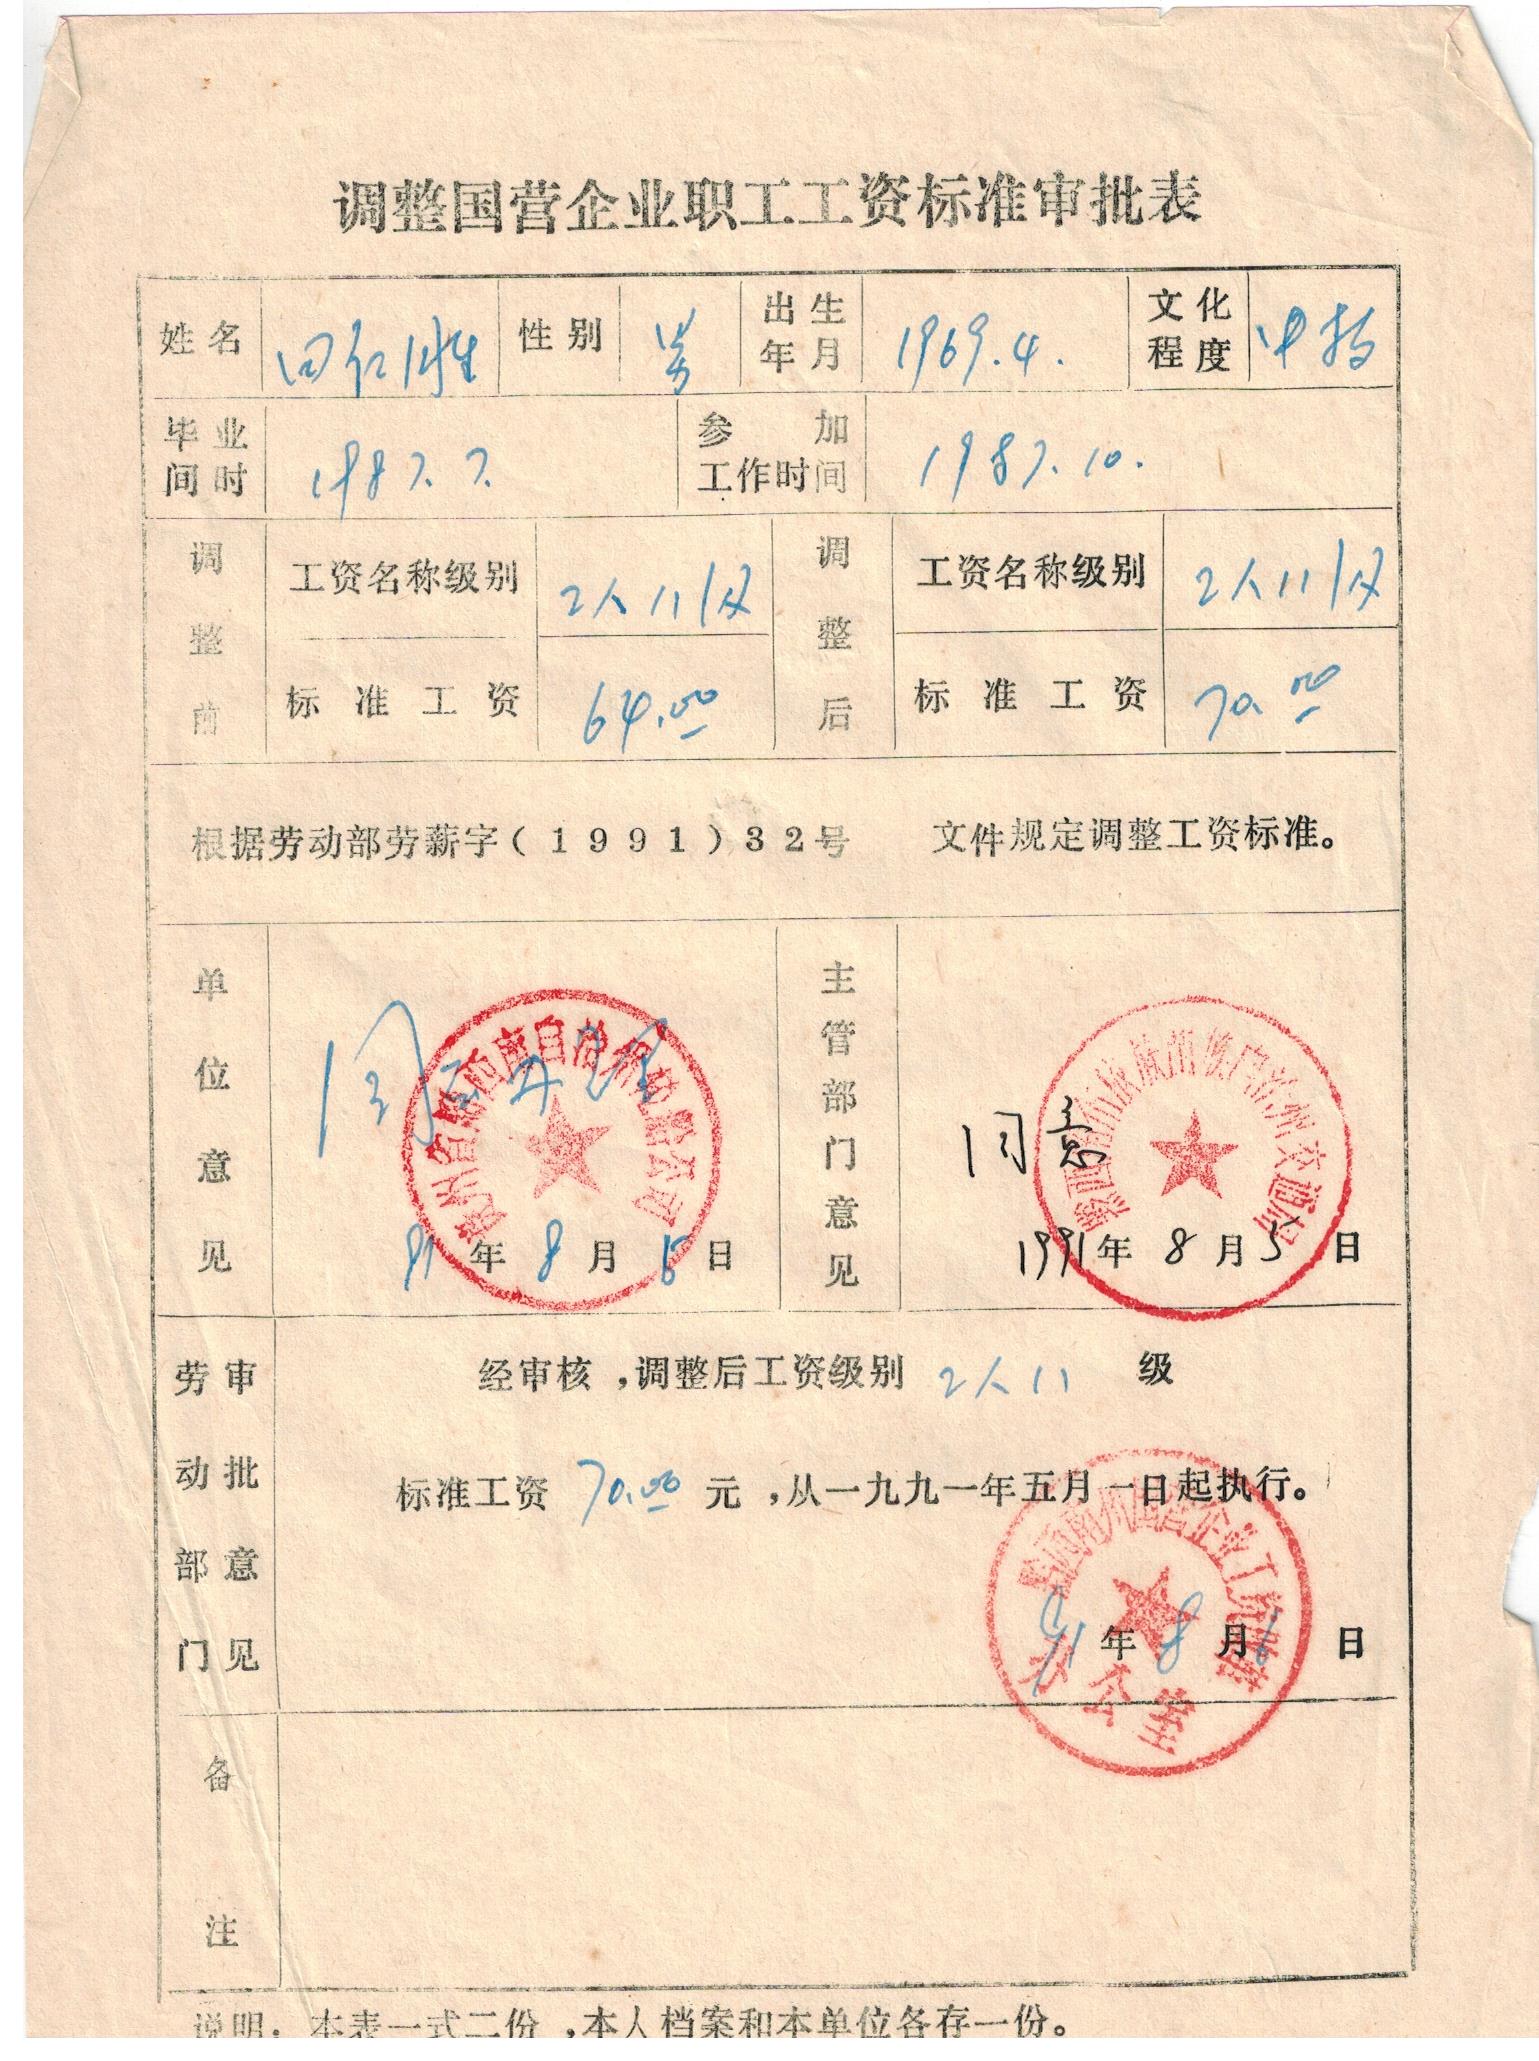 调整国营企业职工工资标准审批表
姓名 田红胜 性别 男 出生年月 1969.4. 文化程度 中技
毕业间时 1987.7. 参加工作时间 1987.10.
调整前 工资名称级别 2人11级 调整后 工资名称级别 2人11级
标准工资 64.00 标准工资 70.00
根据劳动部劳薪字(1991)32号 文件规定调整工资标准。
单位意见 同
91年8月5日
主管部门意见 同意
黔西南布依族苗族自治州交通局
1991年8月5日
劳动部门审批意见
经审核,调整后工资级别 2人11 级
标准工资 70.00 元,从一九九一年五月一日起执行。
办公室
91年8月6日
备注
说明:本表一式二份,本人档案和本单位各存一份。